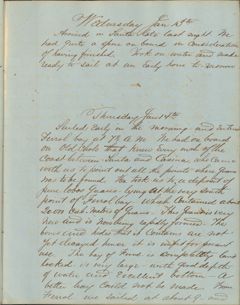 Wednesday Jan 13th
Arrived in Santa last night We
had quite a spree on board in consideration
of having finished. Took on water and made
ready to sail at an early hour to-morrow
Thursday Jan 14th
Sailed early in the morning and entered
Ferrol bay at 7 A.M. We had on board
an Old Cholo that knew every inch of the
Coast between Santa and Casma who came
with us to point out all the points where Guano
was to be found. He took us to a deposit of
pure Guano lying at the very south
point of Ferrol bay which contained about
2000 Cub. meters of Guano. This Guano is very
new and is being rapidly formed. The
bones and that it contains are not
yet decayed hence it is unfit for present
use. The bay of Ferrol is completely land
locked is very large with good depth
of water and Excellent bottom. A
better bay could not be made. From
Ferrol we sailed at about 9 and